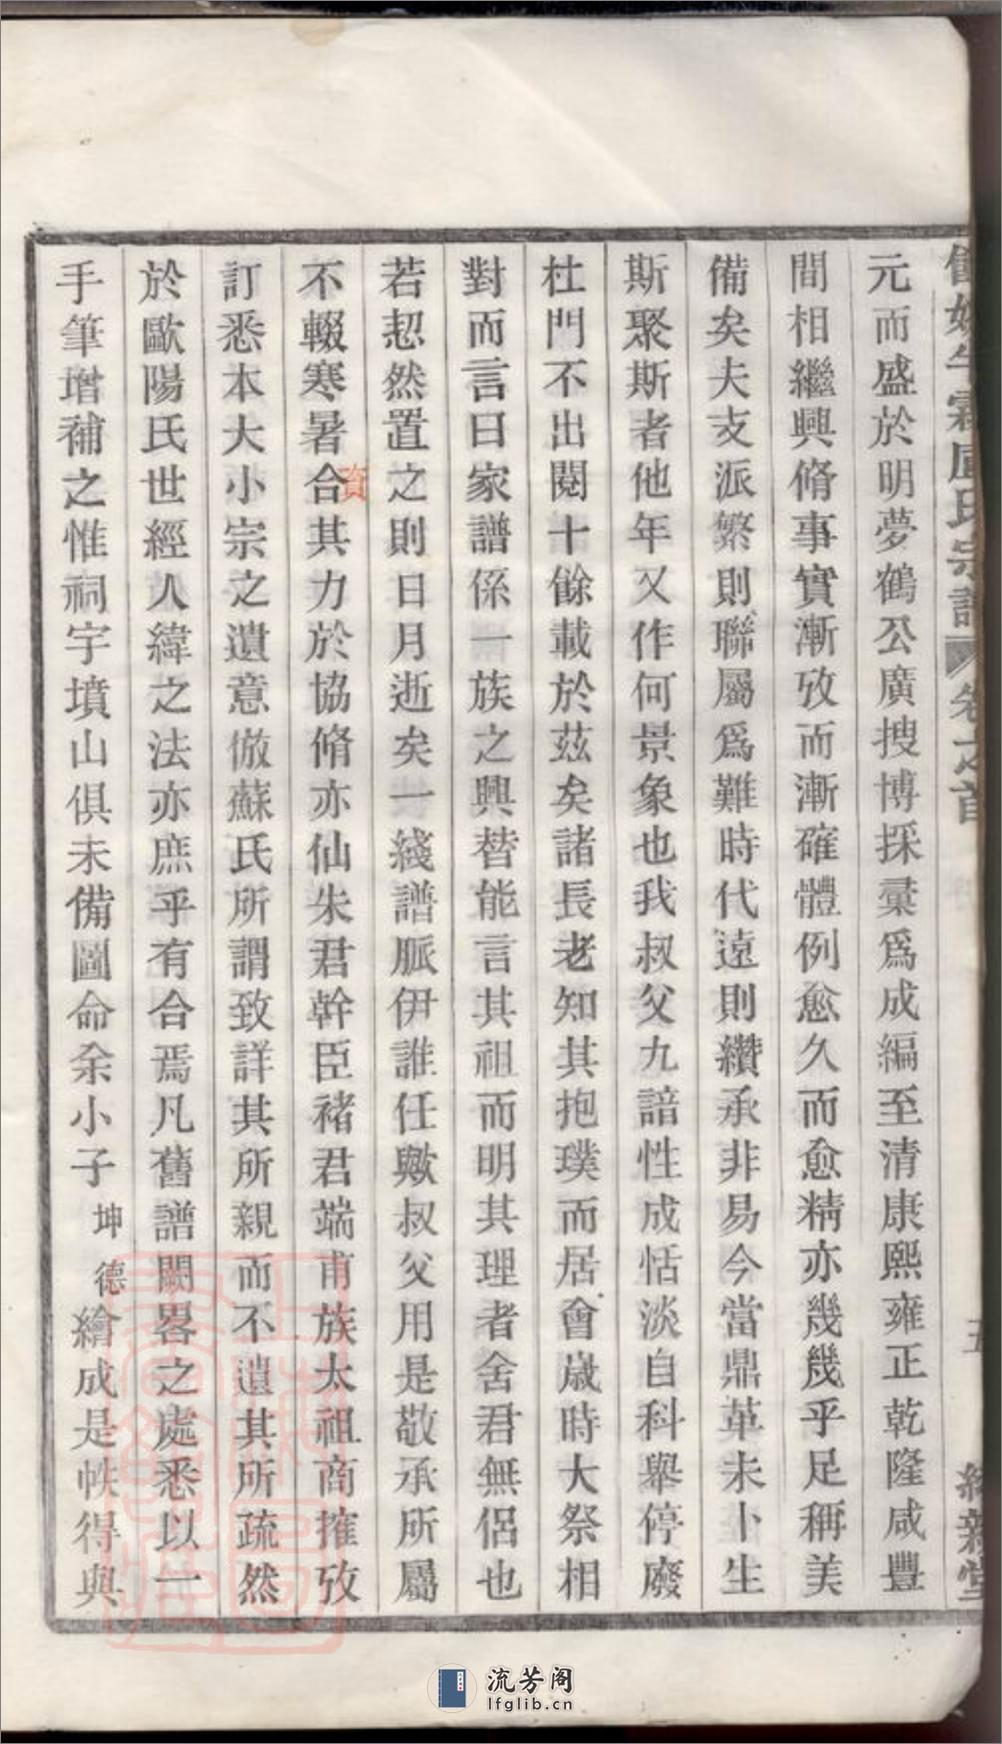 餘姚牛霸屋氏宗譜 卷之首 五
元而盛於明夢鶴公廣搜博採彙爲成編至清康熙雍正乾隆咸豐
間相繼興脩事實漸攷而漸確體例愈久而愈精亦幾幾乎足稱美
備矣夫支派繁則聯屬爲難時代遠則纘承非易今當鼎革未卜生
斯聚斯者他年又作何景象也我叔父九諳性成恬淡自科舉停廢
杜門不出閱十餘載於茲矣諸長老知其抱璞而居會歲時大祭相
對而言曰家譜係一族之興替能言其祖而明其理者舍君無侶也
若恝然置之則日月逝矣一綫譜脈伊誰任歟叔父用是敬承所屬
不輟寒暑合其力於協脩亦仙朱君幹臣褚君端甫族太祖商搉攷
資
訂悉本大小宗之遺意倣蘇氏所謂致詳其所親而不遺其所疏然
於歐陽氏世經人緯之法亦庶乎有合焉凡舊譜闕畧之處悉以一
手筆增補之惟祠宇墳山俱未備圖命余小子坤德繪成是帙得與
流芳阁
lfglib.cn